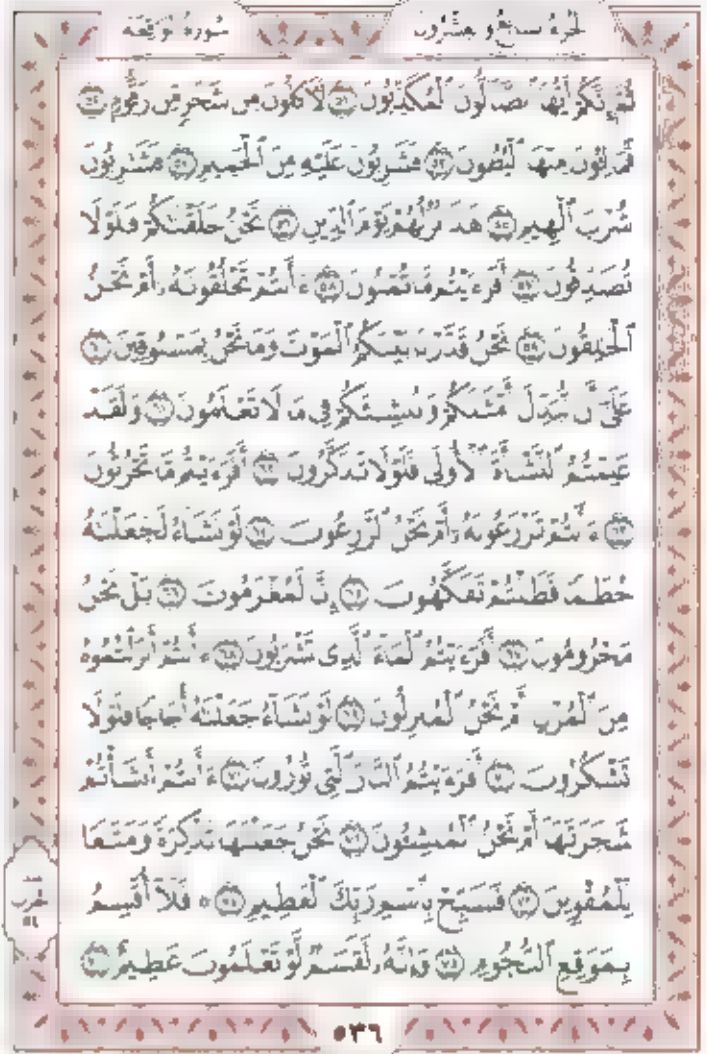 سورة الواقعة الجزء السابع و العشرون
ثُمَّ إِنَّكُمْ أَيُّهَا ٱلضَّآلُّونَ ٱلْمُكَذِّبُونَ ٥١ لَءَاكِلُونَ مِن شَجَرٍ مِّن زَقُّومٍ ٥٢
فَمَالِـُٔونَ مِنْهَا ٱلْبُطُونَ ٥٣ فَشَـٰرِبُونَ عَلَيْهِ مِنَ ٱلْحَمِيمِ ٥٤ فَشَـٰرِبُونَ
شُرْبَ ٱلْهِيمِ ٥٥ هَـٰذَا نُزُلُهُمْ يَوْمَ ٱلدِّينِ ٥٦ نَحْنُ خَلَقْنَـٰكُمْ فَلَوْلَا
تُصَدِّقُونَ ٥٧ أَفَرَءَيْتُم مَّا تُمْنُونَ ٥٨ ءَأَنتُمْ تَخْلُقُونَهُۥٓ أَمْ نَحْنُ
ٱلْخَـٰلِقُونَ ٥٩ نَحْنُ قَدَّرْنَا بَيْنَكُمُ ٱلْمَوْتَ وَمَا نَحْنُ بِمَسْبُوقِينَ ٦٠
عَلَىٰٓ أَن نُّبَدِّلَ أَمْثَـٰلَكُمْ وَنُنشِئَكُمْ فِى مَا لَا تَعْلَمُونَ ٦١ وَلَقَدْ
عَلِمْتُمُ ٱلنَّشْأَةَ ٱلْأُولَىٰ فَلَوْلَا تَذَكَّرُونَ ٦٢ أَفَرَءَيْتُم مَّا تَحْرُثُونَ
٦٣ ءَأَنتُمْ تَزْرَعُونَهُۥٓ أَمْ نَحْنُ ٱلزَّٰرِعُونَ ٦٤ لَوْ نَشَآءُ لَجَعَلْنَـٰهُ
حُطَـٰمًا فَظَلْتُمْ تَفَكَّهُونَ ٦٥ إِنَّا لَمُغْرَمُونَ ٦٦ بَلْ نَحْنُ
مَحْرُومُونَ ٦٧ أَفَرَءَيْتُمُ ٱلْمَآءَ ٱلَّذِى تَشْرَبُونَ ٦٨ ءَأَنتُمْ أَنزَلْتُمُوهُ
مِنَ ٱلْمُزْنِ أَمْ نَحْنُ ٱلْمُنزِلُونَ ٦٩ لَوْ نَشَآءُ جَعَلْنَـٰهُ أُجَاجًا فَلَوْلَا
تَشْكُرُونَ ٧٠ أَفَرَءَيْتُمُ ٱلنَّارَ ٱلَّتِى تُورُونَ ٧١ ءَأَنتُمْ أَنشَأْتُمْ
شَجَرَتَهَآ أَمْ نَحْنُ ٱلْمُنشِـُٔونَ ٧٢ نَحْنُ جَعَلْنَـٰهَا تَذْكِرَةً وَمَتَـٰعًا
لِّلْمُقْوِينَ ٧٣ فَسَبِّحْ بِٱسْمِ رَبِّكَ ٱلْعَظِيمِ ٧٤ ۞ فَلَآ أُقْسِمُ
بِمَوَٰقِعِ ٱلنُّجُومِ ٧٥ وَإِنَّهُۥ لَقَسَمٌ لَّوْ تَعْلَمُونَ عَظِيمٌ ٧٦
الحزب
٥٣٦